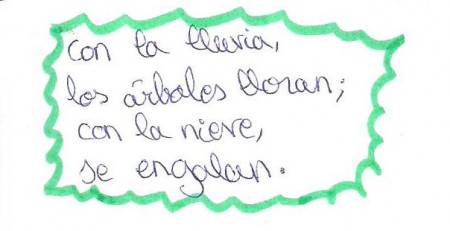 con la lluvia,
los árboles lloran;
con la nieve,
se engalan.